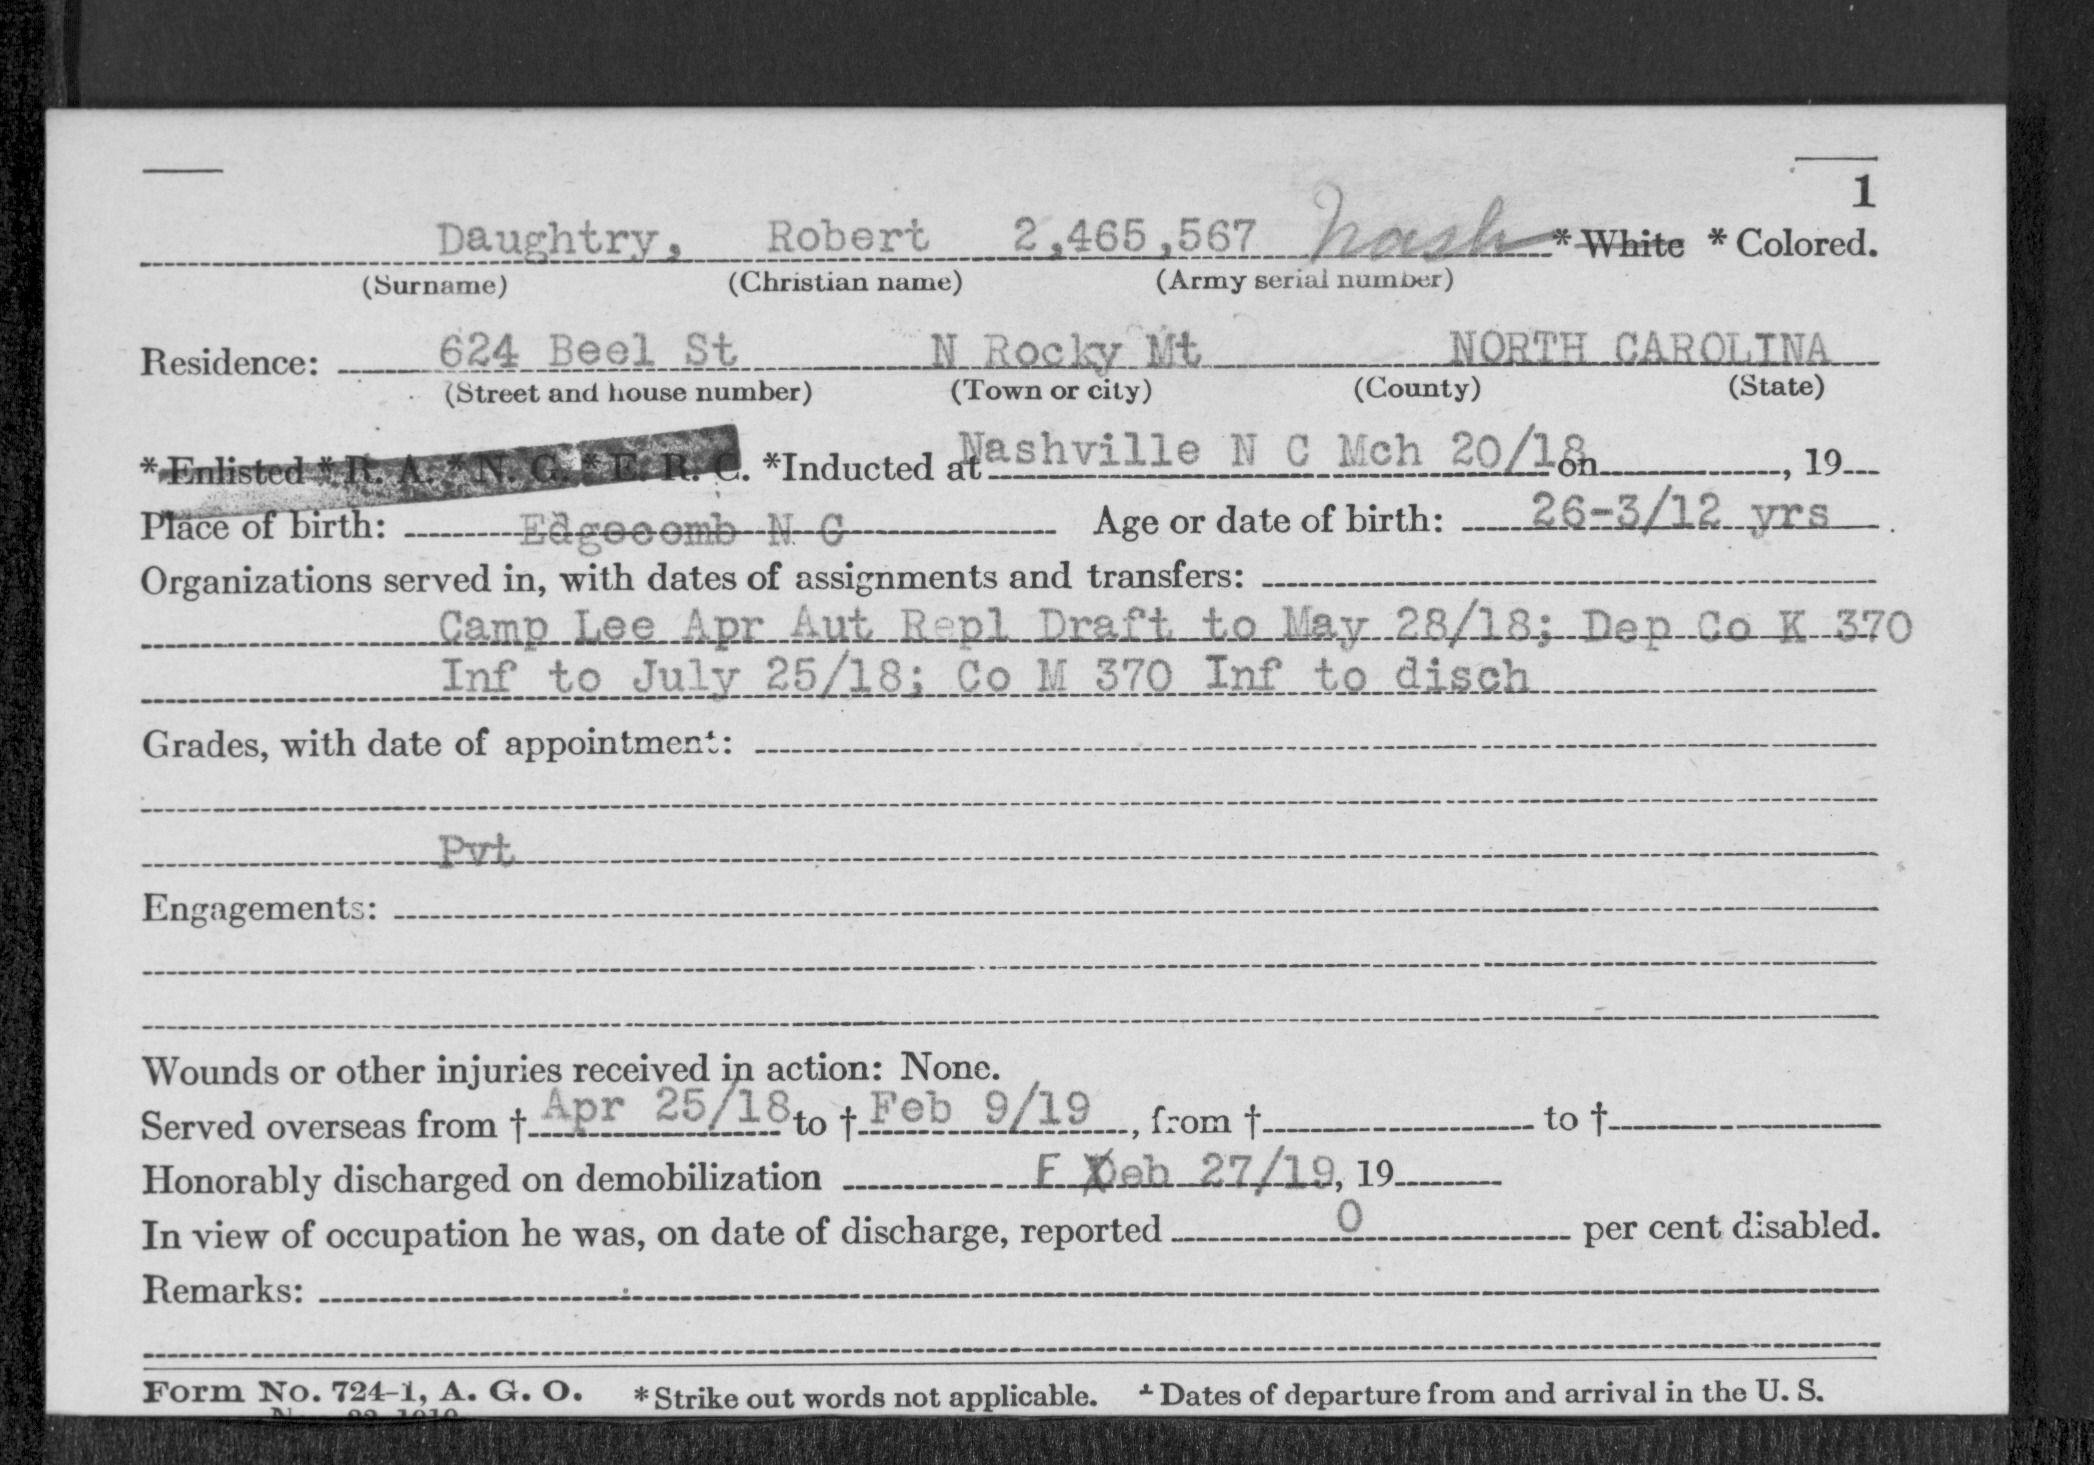 1
Daughtry, Robert 2,465,567 Nash * White * Colored.
(Surname) (Christian name) (Army serial number)
Residence: 624 Beel St N Rocky Mt NORTH CAROLINA
(Street and house number) (Town or city) (County) (State)
* Enlisted * R. A. * N. G. * E. R. C. *Inducted at Nashville N C Mch 20/18 on , 19
Place of birth: Edgecomb N C Age or date of birth: 26-3/12 yrs
Organizations served in, with dates of assignments and transfers:
Camp Lee Apr Aut Repl Draft to May 28/18; Dep Co K 370
Inf to July 25/18; Co M 370 Inf to disch
Grades, with date of appointment:
Pvt
Engagements:
Wounds or other injuries received in action: None.
Served overseas from † Apr 25/18 to † Feb 9/19, from † to †
Honorably discharged on demobilization F eb 27/19, 19
In view of occupation he was, on date of discharge, reported 0 per cent disabled.
Remarks:
Form No. 724-1, A. G. O. * Strike out words not applicable. † Dates of departure from and arrival in the U. S.